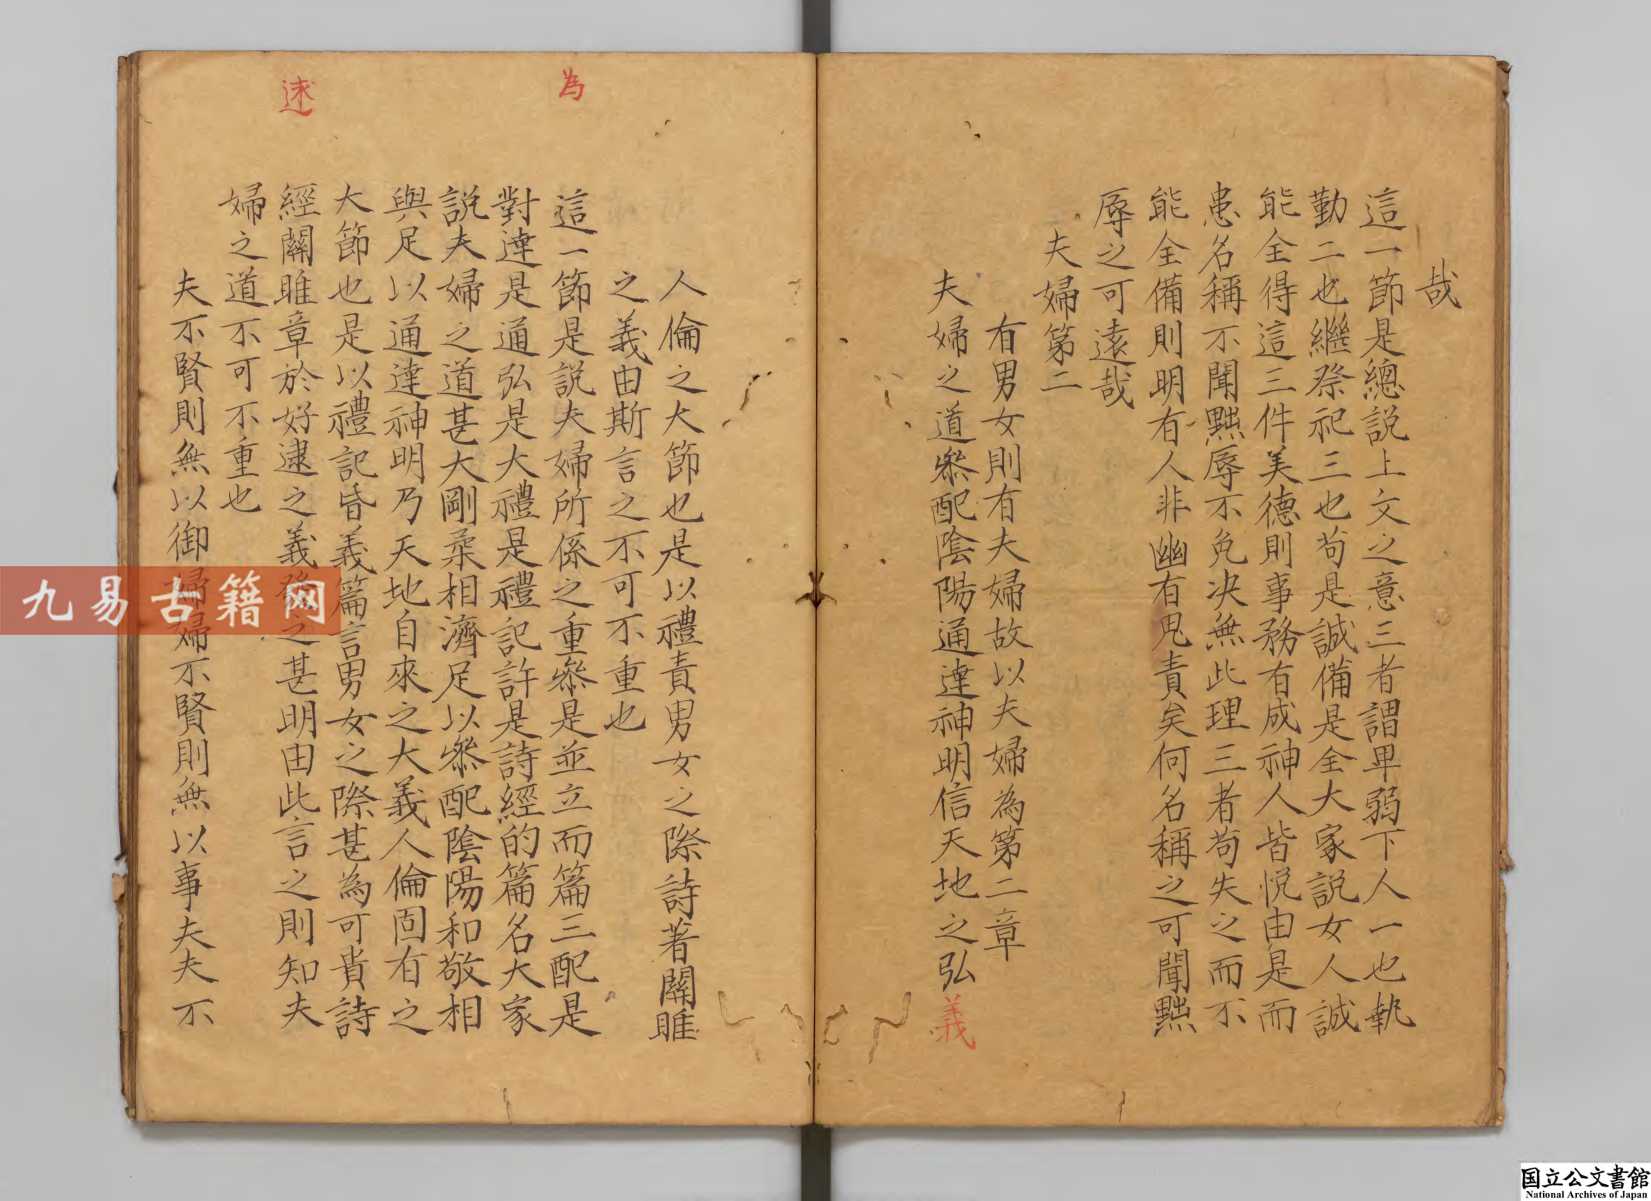 哉
這一節是總説上文之意三者謂卑弱下人一也執
勤二也繼祭祀三也茍是誠備是全大家説女人誠
能全得這三件美德則事務有成神人皆悦由是而
患名稱不聞黙辱不免决無此理三者茍失之而不
能全備則明有人非幽有鬼責矣何名稱之可聞黙
辱之可遠哉
夫婦第二
有男女則有夫婦故以夫婦為第二章
夫婦之道叅配陰陽通達神明信天地之弘義
人倫之大節也是以禮責男女之際詩著關雎
之義由斯言之不可不重也
為
這一節是説夫婦所係之重叅是並立而篇三配是
對達是通弘是大禮是禮記許是詩經的篇名大家
説夫婦之道甚大剛柔相濟足以叅配陰陽和敬相
與足以通達神明乃天地自來之大義人倫固有之
大節也是以禮記昏義篇言男女之際甚為可貴詩
逑
經關雎章於好逮之義發之甚明由此言之則知夫
婦之道不可不重也
夫不賢則無以御婦婦不賢則無以事夫夫不
九易古籍网
国立公文書館
National Archives of Japan